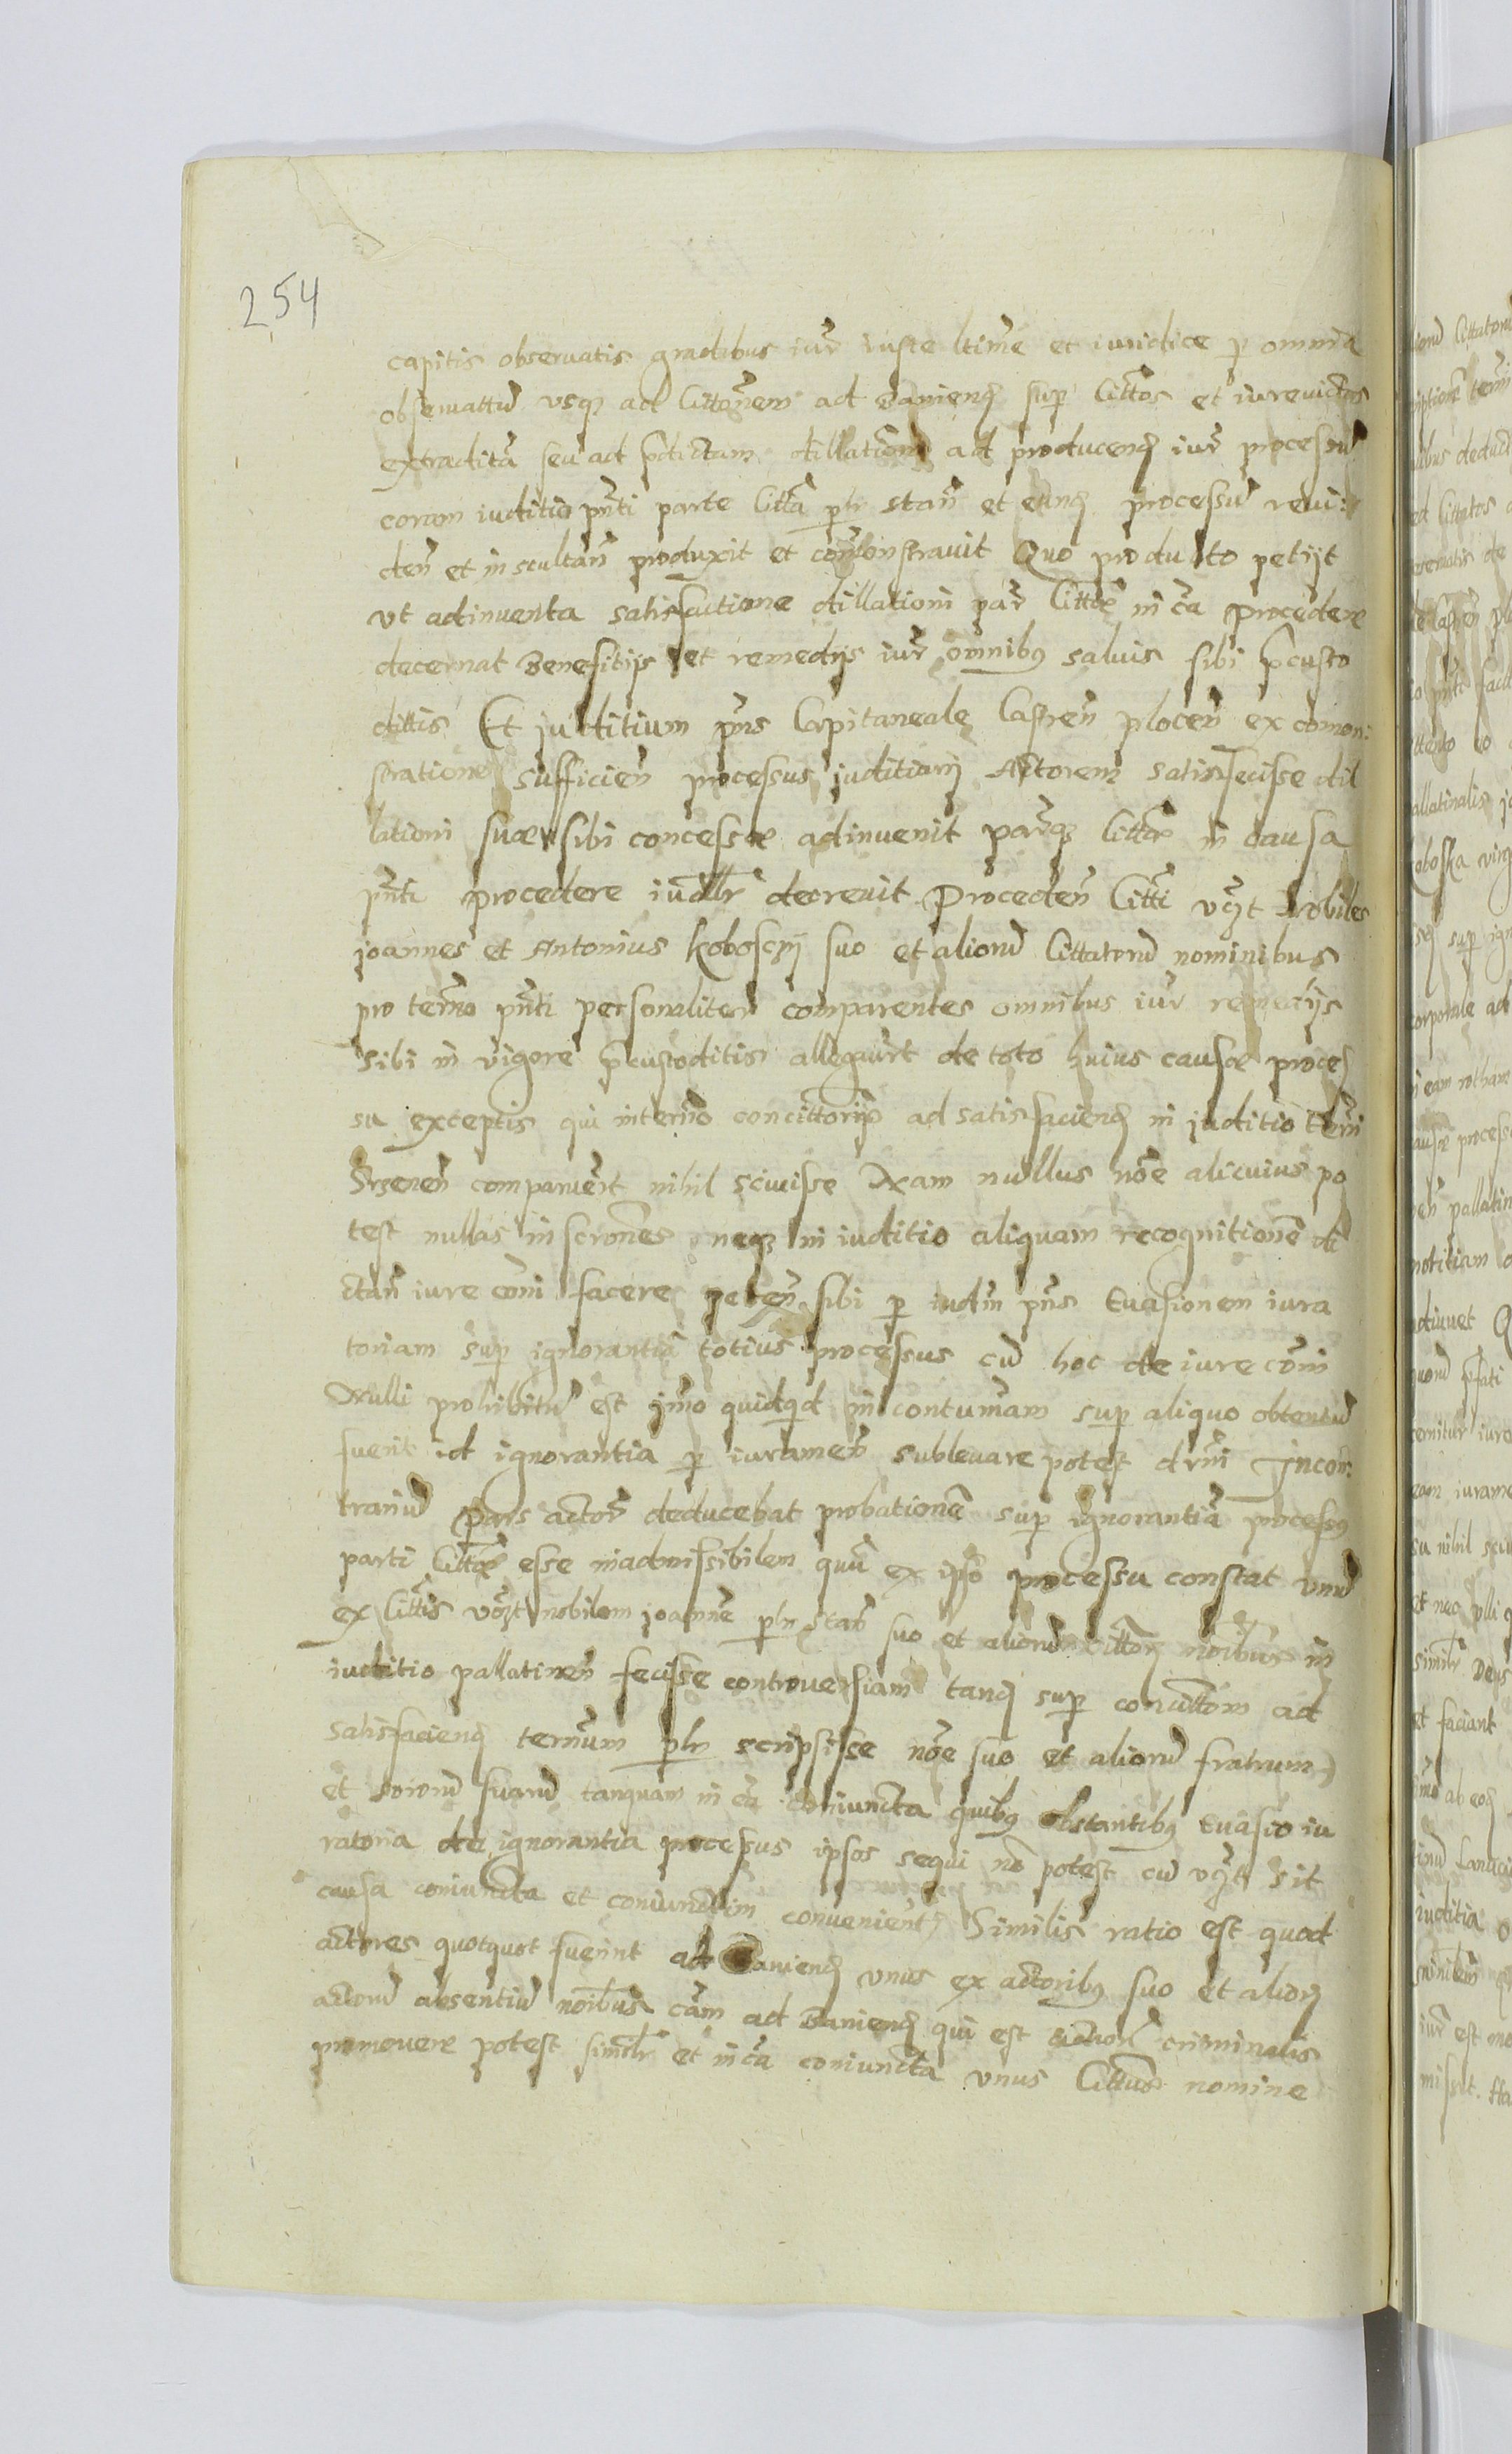 254
capitis observatis gradibus iur̃ iuste ltime et iuridice p omnia
observattũ usq ad littõnem ad Baniend sup littos et iurevictos
extradita seu ad pdictam dillationẽ ad producend iur̃ processũ
coram iuditio pñti parte litta plr stañ et eund processũ revi:
deñ et in scultañ produxit et comonstravit Quo producto petijt
ut adinventa satisfactione dillationi par̃ littæ in ca procedere
decernat Benefitijs et remedijs iur̃ omnibg salvis sibi pcusto
dittis Et juditium pñs Capitaneale Castreñ ploceñ ex comon:
stratione sufficieñ processus juditiarij Actorem satisfecisse dil
lationi suæ sibi concessæ adinvenit parq littæ in causa
pñti procedere iudlr decrevit Procedeñ litti vqt Nobiles
joannes et Antonius koboscij suo et aliorũ littatorũ nominibus
pro termo pñti personaliter comparentes omnibus iur̃ remedijs
sibi in vigore pcustoditis allegavrt de toto huius causæ proces
su exceptis qui in termo concittorijs ad satisfaciend in juditio terri
Srzeneñ comparuert nihil scivisse Nam nullus noe alicuius po
test nullas inscrones neq in iuditio aliquam recognitionẽ di
ctañ iure comi facere peteñ sibi p iudm pñs Evasionem iura
toriam sup ignorantia totius processus cũ hoc de iure comi
Nulli prohibitũ est jmo quidqd in contumam sup aliquo obtentũ
fuerit id ignorantia p iurameñ sublevare potest drni Incon:
trariũ Pars actor̃ deducebat probationẽ sup ignorantia processg
parti littæ esse inadmissibilem qũ ex ipso processu constat unũ
ex littis vqt nobilem joannẽ plr stañ suo et aliorũ litto noibus in
iuditio pallatineñ fecisse controversiam tand sup concittom ad
satisfaciend termum plr scripsisse noe suo et aliorũ fratrum
et sororũ suarũ tanquam in ca coniuncta quibg obstantibg Evasio iu
ratoria de ignorantia processus ipsos sequi nõ potest cũ vqt sit
causa coniuncta et coniunctim convenient Similis ratio est quod
actores quotquot fuerint ad Baniend unus ex actoribg suo et alior
actorũ absentiũ noibus cam ad Baniend qui est actio criminalis
promovere potest similr et in ca coniuncta unus littus nomine